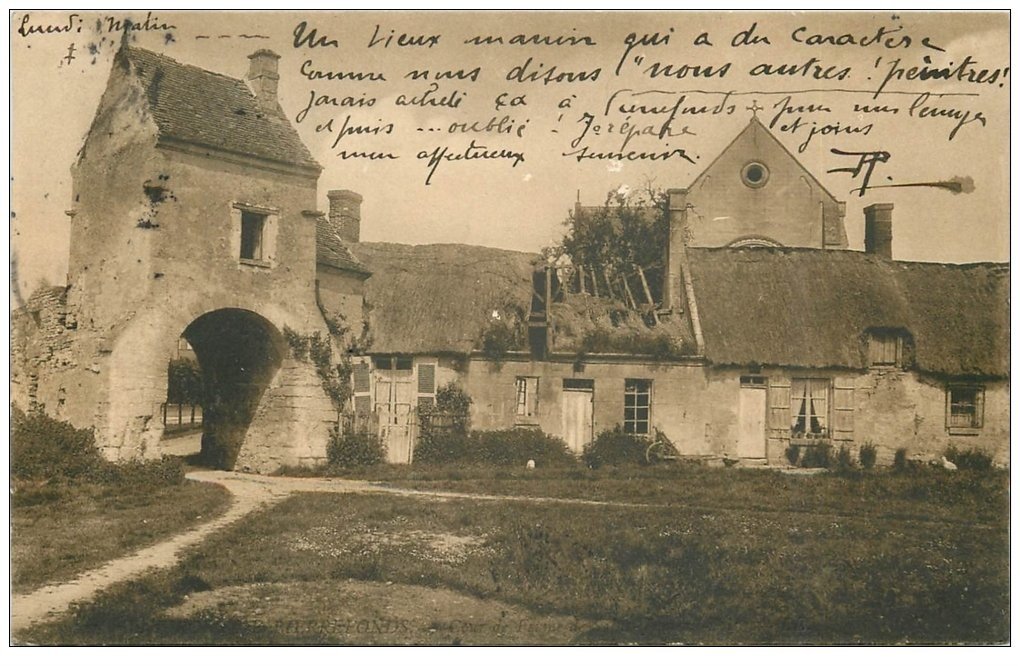 Lundi Matin
Un vieux manoir qui a du caractère
comme nous disons "nous autres! peintres!
J'avais acheté ça à Pierrefonds pour vous l'envoyer
et puis ... oublié! Je répare et joins
mon affectueux souvenir.
PIERREFONDS. Cour de Ferme